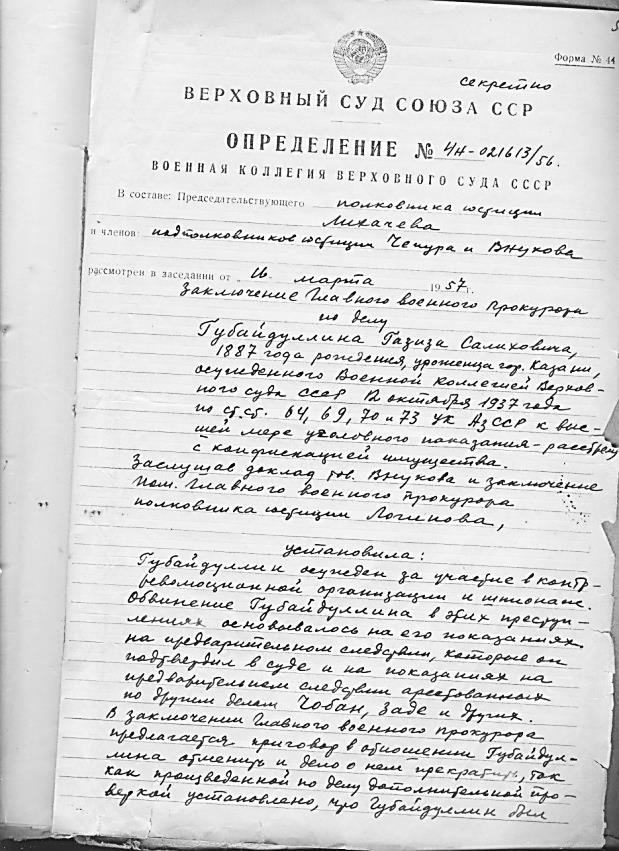 Форма № 44
секретно
ВЕРХОВНЫЙ СУД СОЮЗА ССР
ОПРЕДЕЛЕНИЕ № 4н-021613/56.
ВОЕННАЯ КОЛЛЕГИЯ ВЕРХОВНОГО СУДА СССР
В составе: Председательствующего полковника юстиции
Лихачева
и членов: подполковников юстиции Чепура и Внукова
рассмотрен в заседании от 16 марта 1957 г.
Заключение Главного военного прокурора
по делу
Губайдуллина Газиза Салиховича,
1887 года рождения, уроженца гор. Казани,
осужденного Военной коллегией Верхов-
ного суда СССР 12 октября 1937 года
по ст.ст. 64, 69, 70 и 73 УК АзССР к выс-
шей мере уголовного наказания - расстрелу
с конфискацией имущества.
Заслушав доклад тов. Внукова и заключение
пом. Главного военного прокурора
полковника юстиции Логинова,
установила:
Губайдуллин осужден за участие в контр-
революционной организации и шпионаж.
Обвинение Губайдуллина в этих преступ-
лениях основывалось на его показаниях
на предварительном следствии, которые он
подтвердил в суде и на показаниях на
предварительном следствии арестованных
по другим делам Чобан, Заде и других.
В заключении Главного военного прокурора
предлагается приговор в отношении Губайдул-
лина отменить и дело о нем прекратить, так
как произведенной по делу дополнительной про-
веркой установлено, что Губайдуллин был